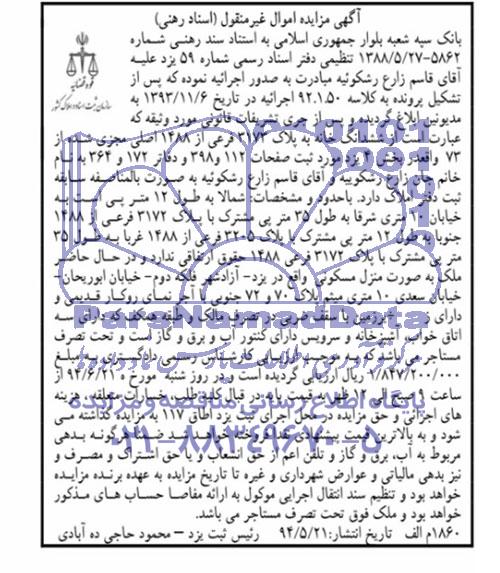 آگهی مزایده اموال غیرمنقول (اسناد رهنی)
بانک سپه شعبه بلوار جمهوری اسلامی به استناد سند رهنی شماره
۵۸۶۲-۱۳۸۸/۵/۲۷ تنظیمی دفتر اسناد رسمی شماره ۵۹ یزد علیه
آقای قاسم زارع رشکوئیه مبادرت به صدور اجرائیه نموده که پس از
تشکیل پرونده به کلاسه ۹۲.۱.۵۰ اجرائیه در تاریخ ۱۳۹۳/۱۱/۶ به
مدیونین ابلاغ گردیده و پس از جری تشریفات قانونی مورد وثیقه که
عبارت است از ششدانگ خانه به پلاک ۳۱۷۳ فرعی از ۱۴۸۸ اصلی مجزی شده از
۷۳ واقع در بخش یزد مورد ثبت صفحات ۱۱۲ و ۳۹۸ و دفاتر ۱۷۲ و ۳۶۴ به نام
خانم زارع رشکوییه و آقای قاسم زارع رشکوئیه به صورت بالمناصفه سابقه
ثبت دفتر املاک دارد. باحدود و مشخصات: شمالا به طول ۱۲ متر پی است به
خیابان متری شرقا به طول ۳۵ متر پی مشترک با پلاک ۳۱۷۲ فرعی از ۱۴۸۸
جنوبا به طول ۱۲ متر پی مشترک با پلاک ۳۲۰۵ فرعی از ۱۴۸۸ غربا به طول ۳۵
متر پی مشترک با پلاک ۳۱۷۲ فرعی ۱۴۸۸ حقوق ارتفاقی ندارد و در حال حاضر
ملک به صورت منزل مسکونی واقع در یزد- آزادشهر فلکه دوم- خیابان ابوریحان-
خیابان سعدی ۱۰ متری میثم پلاک ۷۰ و ۷۲ جنوبی آجر نمای روکار قدیمی و
دارای زیرزمین با سقف ضربی در تصرف مالک و طبقه همکف که دارای سه
اتاق خواب، آشپزخانه و سرویس دارای کنتور آب و برق و گاز است و تحت تصرف
مستاجر می‌باشد که به موجب ارزیابی کارشناس رسمی دادگستری به مبلغ
۲/۸۴۷/۲۰۰/۰۰۰ ریال ارزیابی گردیده است و در روز شنبه مورخ ۹۴/۶/۲۱ از
ساعت ۹ صبح الی ۱۲ ظهر به قیمت پایه در قبال کلیه طلب خسارات متعلقه، هزینه
های اجرائی و حق مزایده در محل اجرای ثبت یزد اطاق ۱۱۷ به مزایده گذاشته می
شود و به بالاترین قیمت پیشنهادی نقدا فروخته خواهد شد. ضمنا هرگونه بدهی
مربوط به آب، برق و گاز و تلفن اعم از حق انشعاب و یا حق اشتراک و مصرف و
نیز بدهی مالیاتی و عوارض شهرداری و غیره تا تاریخ مزایده به عهده برنده مزایده
خواهد بود و تنظیم سند انتقال اجرایی موکول به ارائه مفاصا حساب های مذکور
خواهد بود و ملک فوق تحت تصرف مستاجر می باشد.
۱۸۶۰م الف تاریخ انتشار: ۹۴/۵/۲۱ رئیس ثبت یزد – محمود حاجی ده آبادی
قوه قضائیه
سازمان ثبت اسناد و املاک کشور
ParsNamadData
پایگاه اطلاع رسانی مناقصه و مزایده
۰۲۱-۸۸۳۴۹۶۷۰-۵